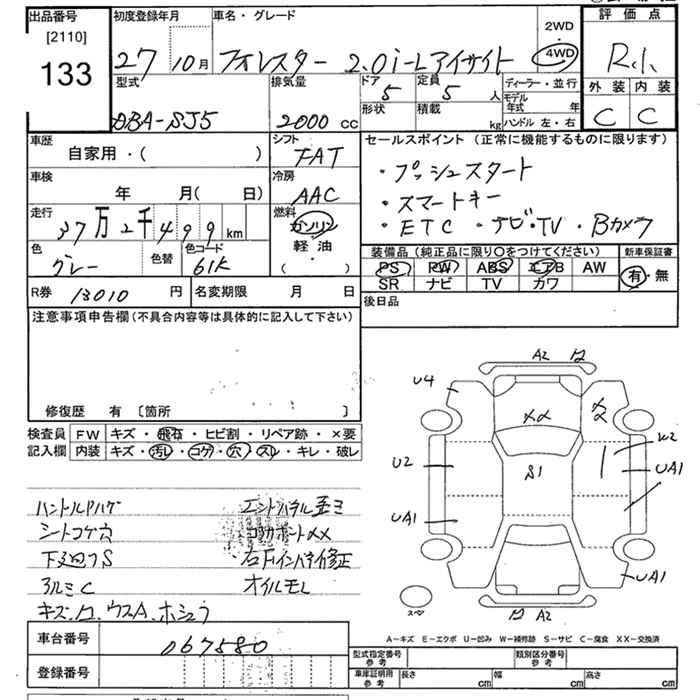 出品番号
[2110]
133
初度登録年月
27 10月
車名・グレード
フォレスター 2.0i-Lアイサイト
2WD
・
4WD
評価点
R.小
外装 内装
C C
型式
DBA-SJ5
排気量
2000 cc
ドア 5
定員 5 人
形状
積載 kg
ディーラー・並行
モデル年式 年
ハンドル 左・右
車歴
自家用・( )
シフト
FAT
車検
年 月( 日)
冷房
AAC
走行
37万2千499km
燃料
ガソリン
軽油
( )
色
グレー
色替
色コード
61K
R券 13010 円
名変期限 月 日
セールスポイント(正常に機能するものに限ります)
・プッシュスタート
・スマートキー
・ETC ・ナビ・TV ・Bカメラ
装備品(純正品に限り○をつけてください)
PS PW ABS エアB AW
SR ナビ TV カワ
新車保証書
有・無
後日品
注意事項申告欄(不具合内容等は具体的に記入して下さい)
修復歴 有 〔箇所 〕
検査員記入欄
FW キズ・飛石・ヒビ割・リペア跡・×要
内装 キズ・汚レ・コゲ・穴・スレ・キレ・破レ
ハンドルハゲ
シートコゲ穴
下廻りS
アルミC
キズ、凹、ウスA、ホシュウ
右Fインパネ修正
オイルモレ
A2
U4
XX
U2
S1
UA1
UA1
UA1
A2
車台番号 067580
登録番号
A-キズ E-エクボ U-凹み W-補修跡 S-サビ C-腐食 XX-交換済
型式指定番号 参考
類別区分番号 参考
車庫証明用 参考
長さ cm
幅 cm
高さ cm